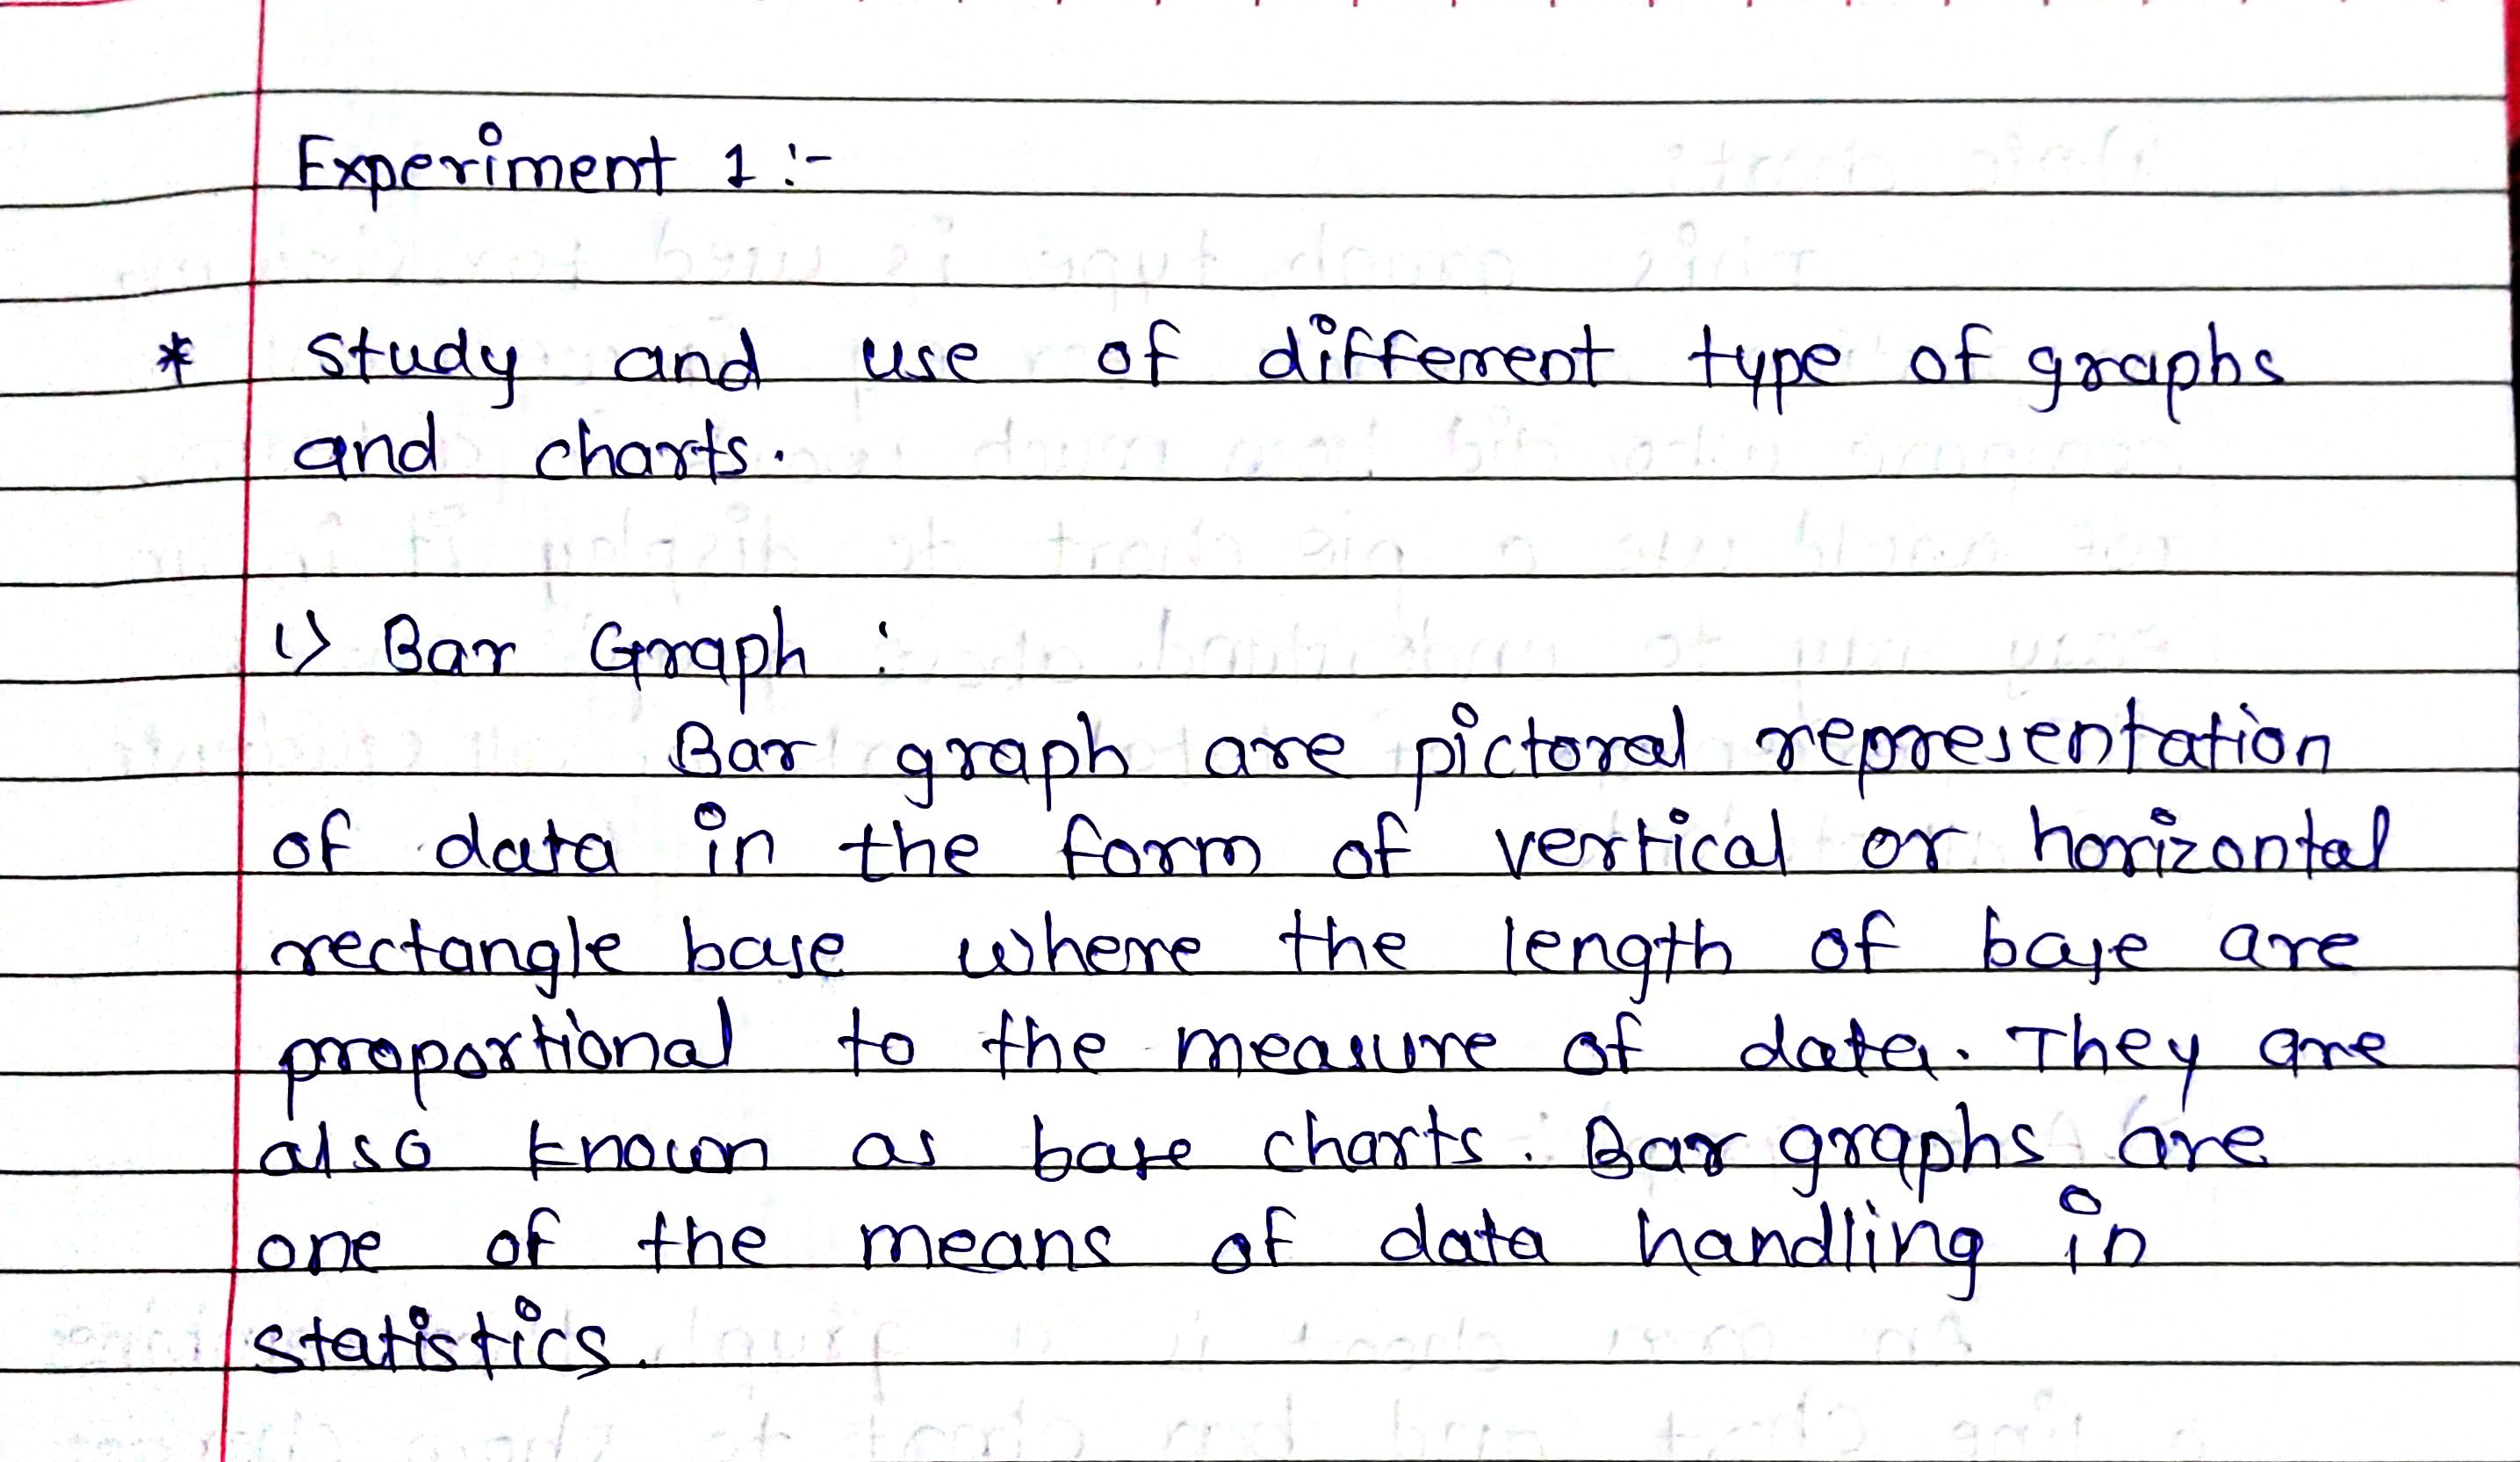 Experiment 1 :-
* study and use of different type of graphs
and charts.
1) Bar Graph :
Bar graph are pictoral representation
of data in the form of vertical or horizontal
rectangle base where the length of base are
proportional to the measure of data. They are
also known as base charts. Bar graphs are
one of the means of data handling in
statistics.